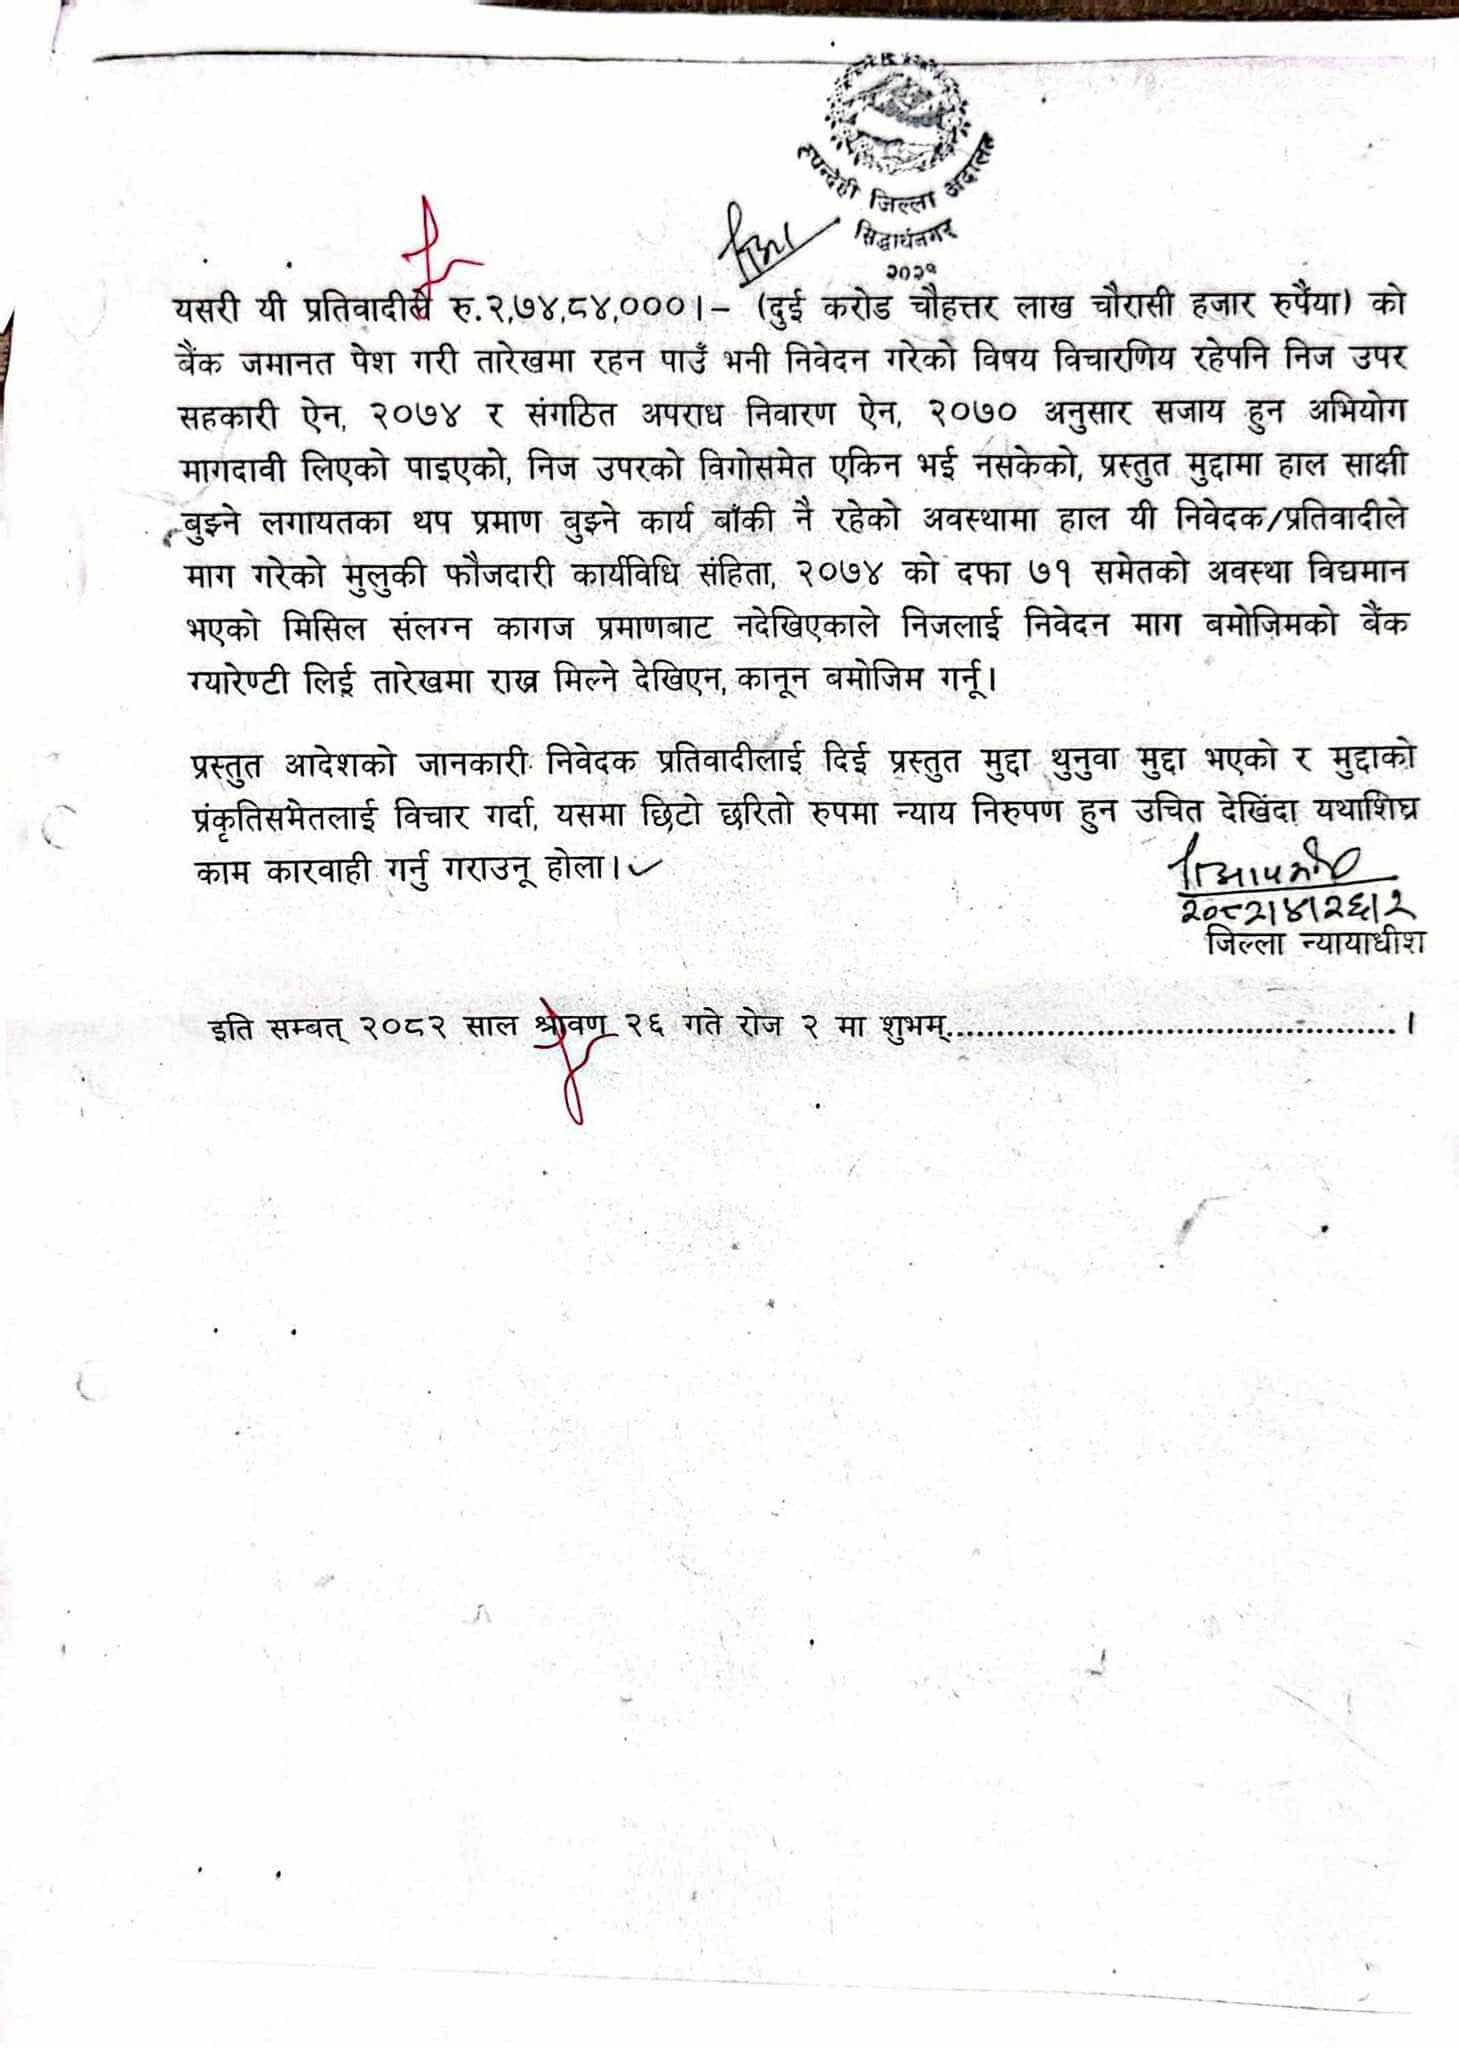 रुपन्देही जिल्ला अदालत
सिद्धार्थनगर
२०२१
यसरी यी प्रतिवादीले रु.२,७४,८४,०००।– (दुई करोड चौहत्तर लाख चौरासी हजार रुपैंया) को
बैंक जमानत पेश गरी तारेखमा रहन पाउँ भनी निवेदन गरेको विषय विचारणिय रहेपनि निज उपर
सहकारी ऐन, २०७४ र संगठित अपराध निवारण ऐन, २०७० अनुसार सजाय हुन अभियोग
मागदावी लिएको पाइएको, निज उपरको विगोसमेत एकिन भई नसकेको, प्रस्तुत मुद्दामा हाल साक्षी
बुझ्ने लगायतका थप प्रमाण बुझ्ने कार्य बाँकी नै रहेको अवस्थामा हाल यी निवेदक/प्रतिवादीले
माग गरेको मुलुकी फौजदारी कार्यविधि संहिता, २०७४ को दफा ७१ समेतको अवस्था विद्यमान
भएको मिसिल संलग्न कागज प्रमाणबाट नदेखिएकाले निजलाई निवेदन माग बमोजिमको बैंक
ग्यारेण्टी लिई तारेखमा राख्न मिल्ने देखिएन, कानून बमोजिम गर्नू।
प्रस्तुत आदेशको जानकारी निवेदक प्रतिवादीलाई दिई प्रस्तुत मुद्दा थुनुवा मुद्दा भएको र मुद्दाको
प्रकृतिसमेतलाई विचार गर्दा, यसमा छिटो छरितो रुपमा न्याय निरुपण हुन उचित देखिंदा यथाशिघ्र
काम कारवाही गर्नु गराउनू होला।
२०८२।४।२६।२
जिल्ला न्यायाधीश
इति सम्बत् २०८२ साल श्रावण २६ गते रोज २ मा शुभम्..........................................।